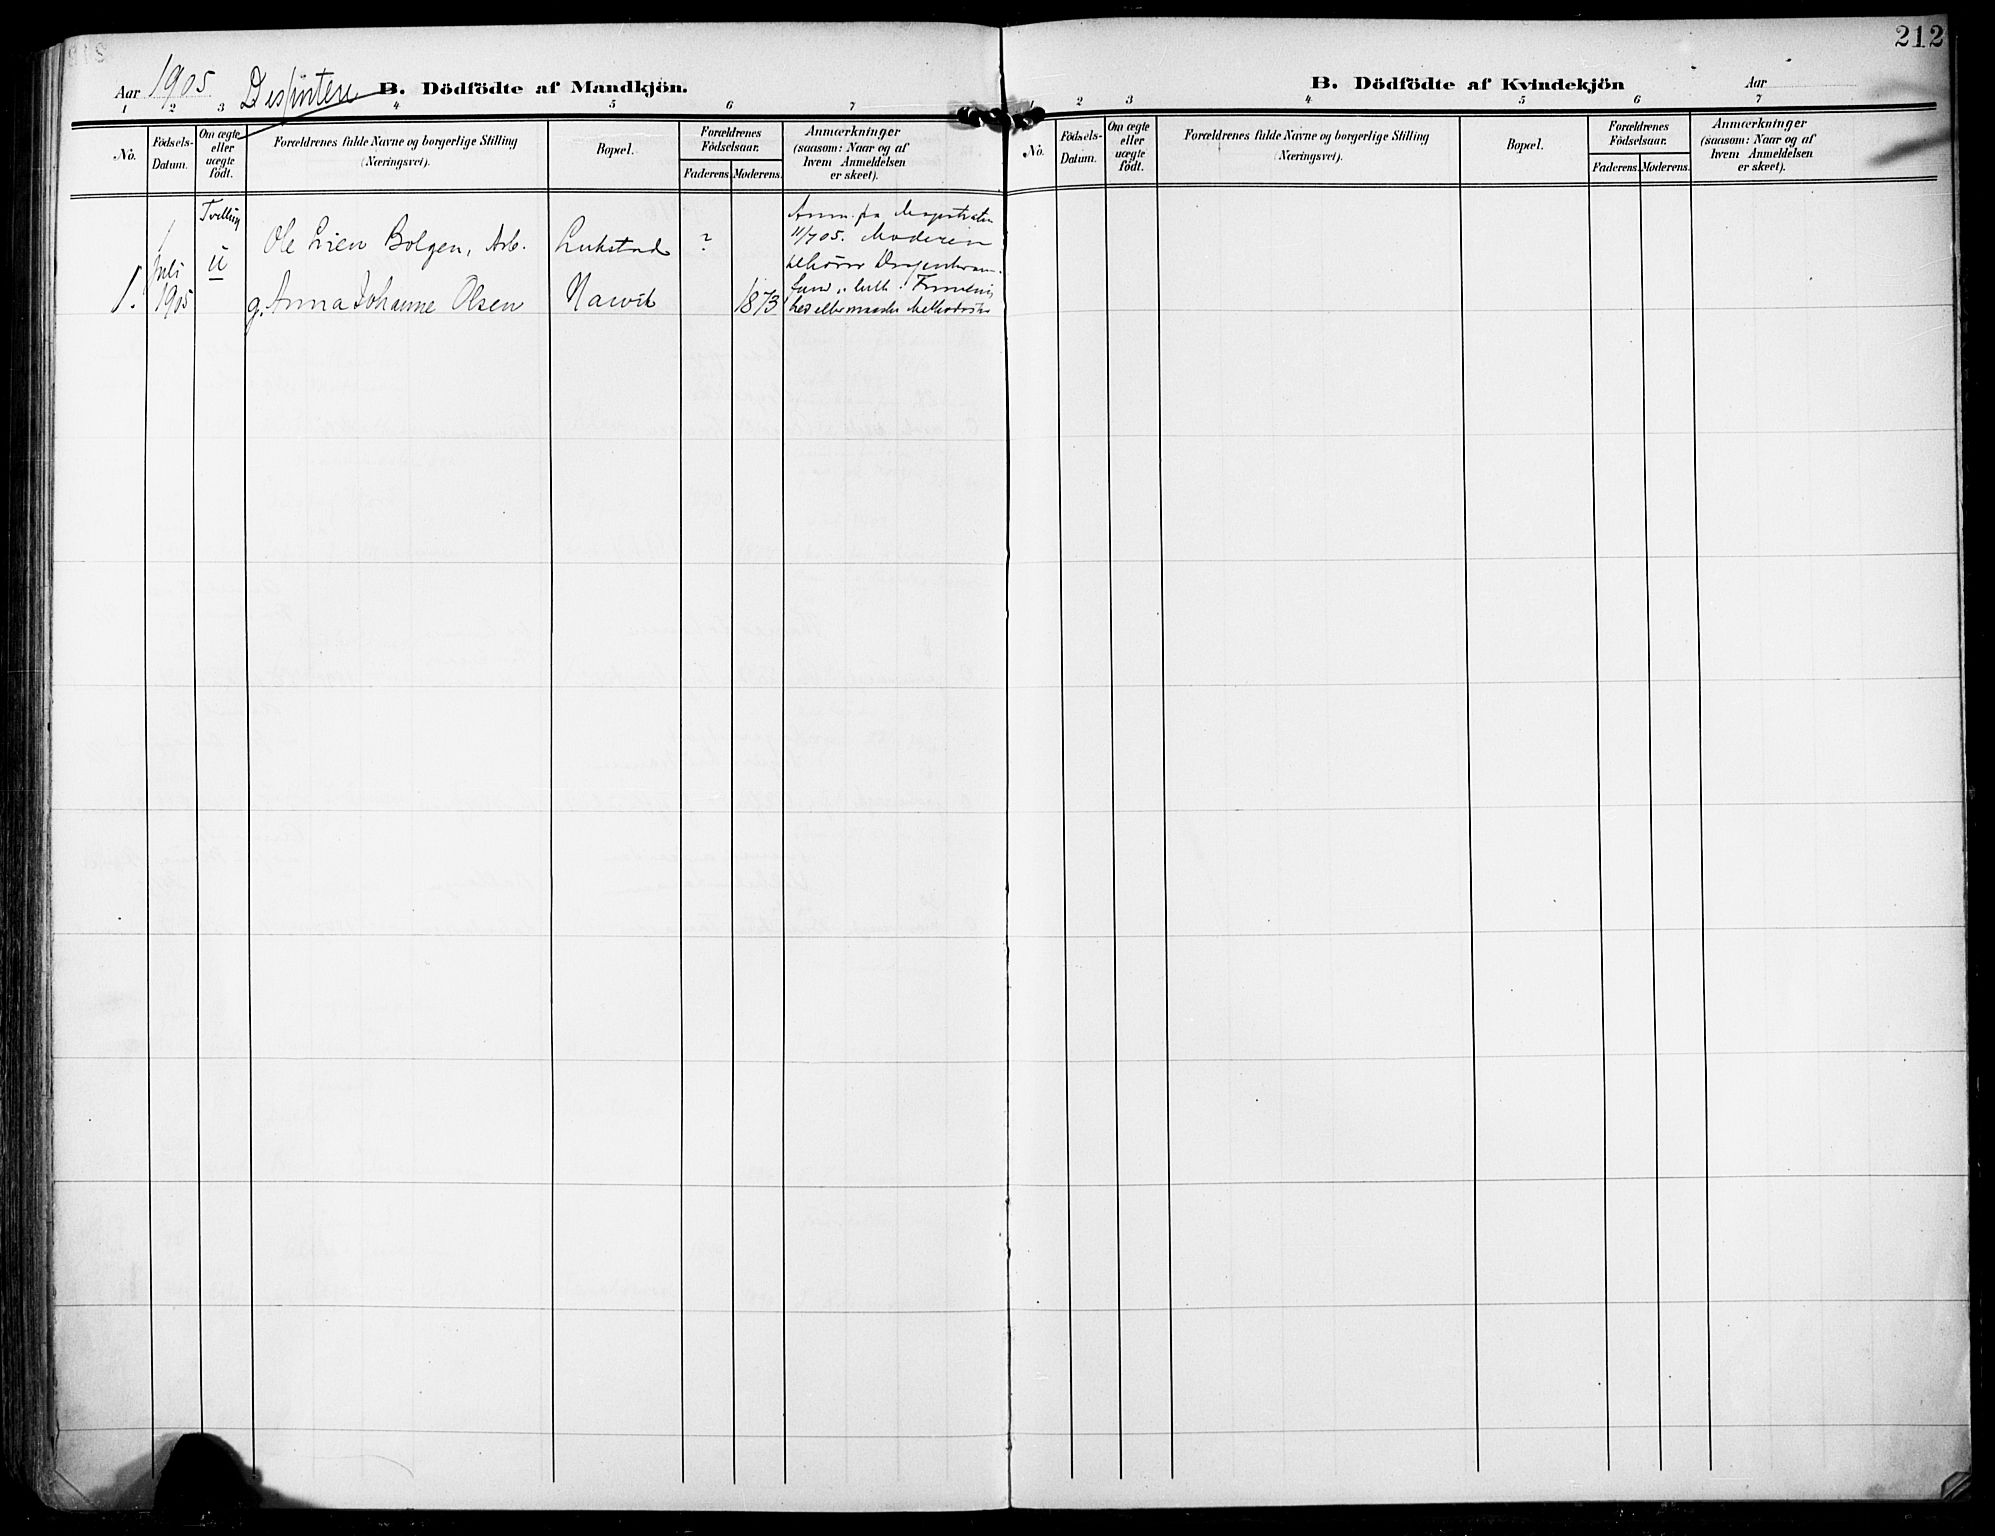 212
Aar 1905. B. Dödfödte af Mandkjön.
1 2 3 4 5 6 7
No.
Födsels-
Datum.
Om ægte
eller
uægte
födt.
Forældrenes fulde Navne og borgerlige Stilling
(Næringsvei).
Bopæl.
Forældrenes
Födselsaar.
Faderens. Moderens.
Anmærkninger
(saasom: Naar og af
hvem Anmeldelsen
er skeet).
1.
1
juli
1905
Tvilling
u
Ole Lien Bolgen, Arb.
g. Anna Johanne Olsen
Narvik
?
1873
11/7 05. Moderen
B. Dödfödte af Kvindekjön Aar
1 2 3 4 5 6 7
No.
Födsels-
Datum.
Om ægte
eller
uægte
födt.
Forældrenes fulde Navne og borgerlige Stilling
(Næringsvei).
Bopæl.
Forældrenes
Födselsaar.
Faderens. Moderens.
Anmærkninger
(saasom: Naar og af
hvem Anmeldelsen
er skeet).